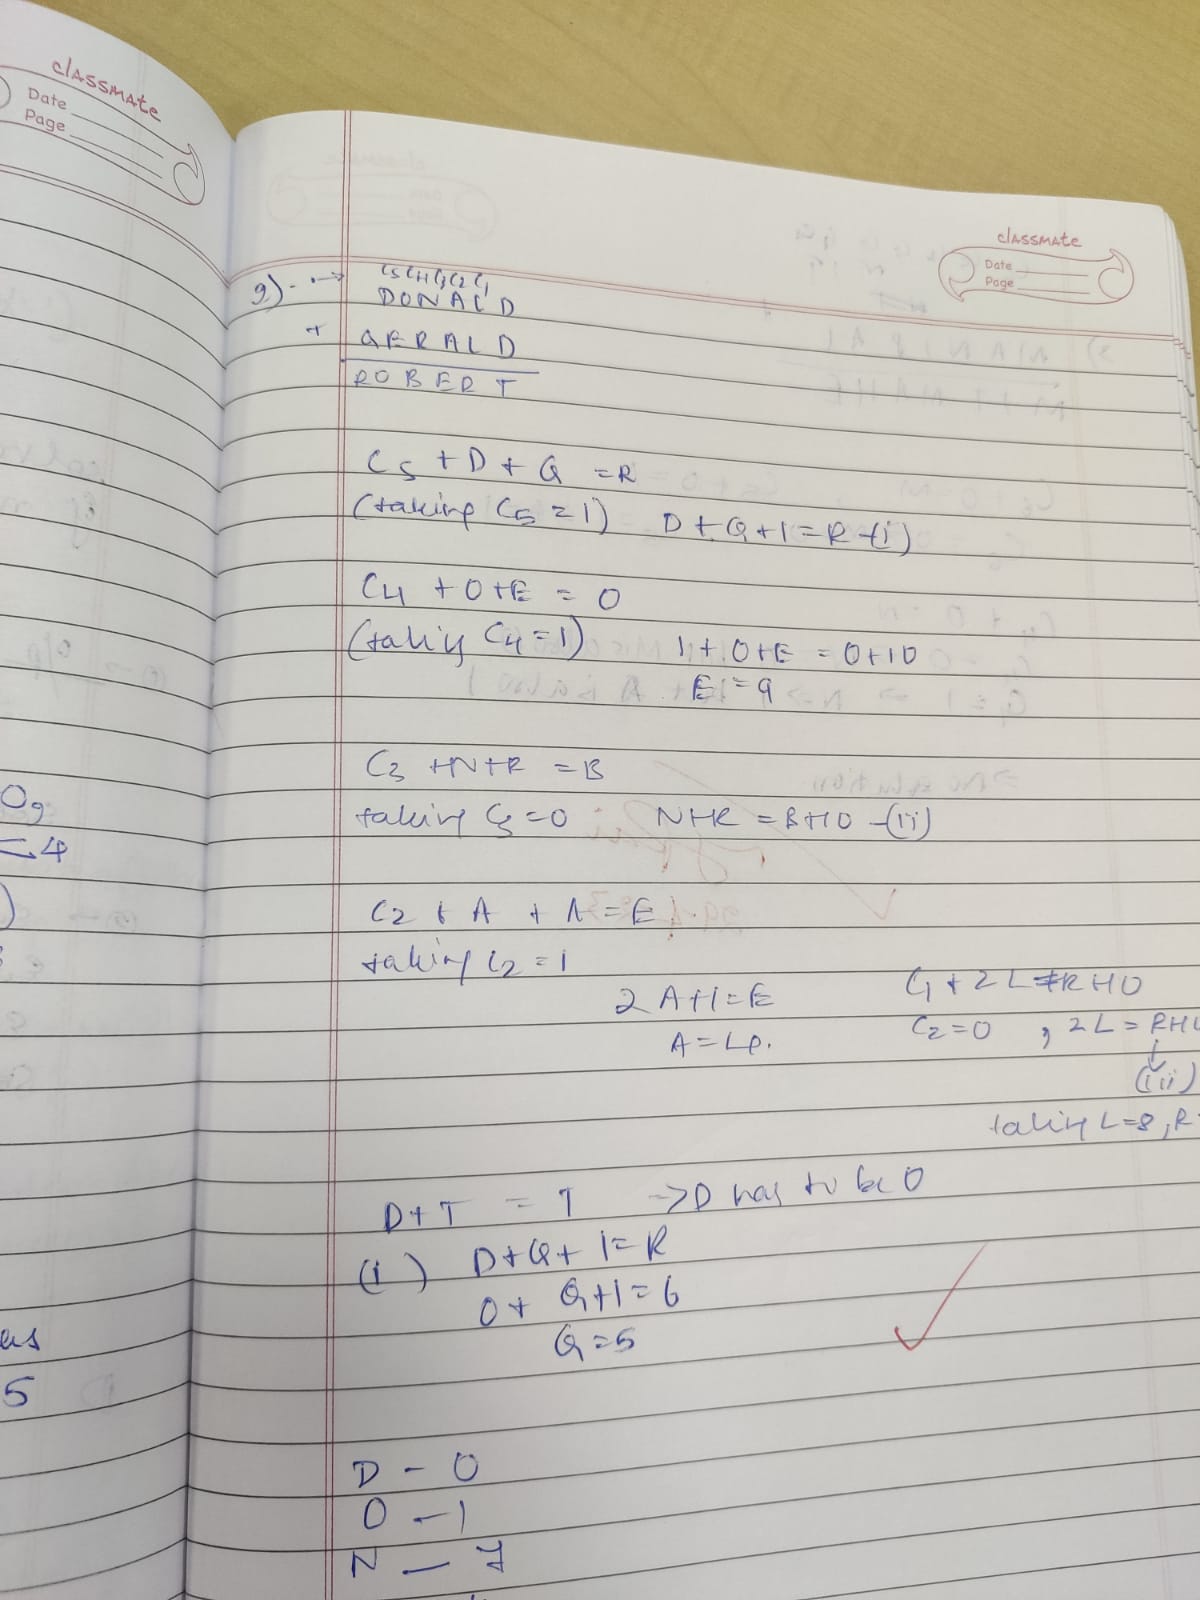 classmate
Date
Page
classmate
Date
Page
9) - →
C5 C4 C3 C2 C1
DONALD
+ GERALD
ROBERT
C5 + D + G = R
(taking C5 = 1) D + G + 1 = R -(i)
C4 + O + E = O
(taking C4 = 1) 1 + O + E = O + 10
E = 9
C3 + N + R = B
taking C3 = 0 N + R = B + 10 -(ii)
C2 + A + A = E
taking C2 = 1
2A + 1 = E
A = 4
C1 + 2L = R + 10
C2 = 0 , 2L = R + 10
(iii)
taking L = 8, R
D + T = T → D has to be 0
(i) D + G + 1 = R
0 + G + 1 = 6
G = 5
D - 0
O - 1
N - 7
Og
= 4
)
us
5